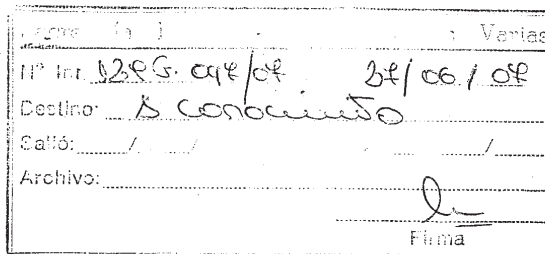 Varias
Nº Int. 047/07 27/06/07
Destino: A conocimiento
Salió: / / / /
Archivo:
Firma